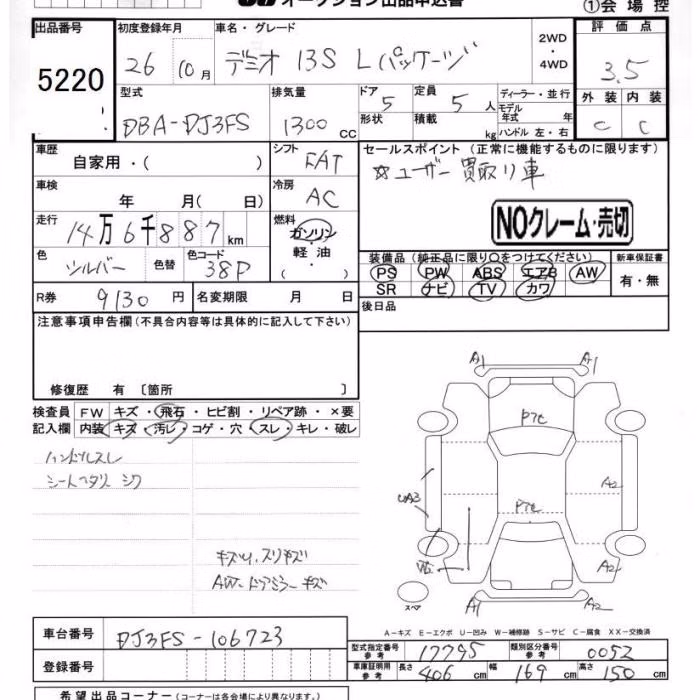 オークション出品申込書 ①会場控
出品番号 初度登録年月 車名・グレード 2WD・4WD 評価点
5220 26 10月 デミオ 13S Lパッケージ 3.5
型式 排気量 ドア 定員 ディーラー・並行 外装 内装
DBA-DJ3FS 1300cc 5 5人 モデル年式 年 C C
形状 積載 kg ハンドル 左・右
車歴 自家用・( ) シフト FAT セールスポイント (正常に機能するものに限ります)
☆ユーザー買取り車
車検 年 月( 日) 冷房 AC
NOクレーム・売切
走行 14万6千887km 燃料 ガソリン・軽油・( )
色 シルバー 色替 色コード 38P
装備品(純正品に限り○をつけてください) 新車保証書
PS PW ABS エアB AW 有・無
SR ナビ TV カワ
R券 9130円 名変期限 月 日
後日品
注意事項申告欄(不具合内容等は具体的に記入して下さい)
修復歴 有 〔箇所 〕
検査員記入欄 FW キズ・飛石・ヒビ割・リペア跡・×要
内装 キズ・汚レ・コゲ・穴・スレ・キレ・破レ
ハンドルスレ
シートヘタリ シワ
キズU、スリキズ
AW・ドアミラーキズ
A1 A1
P7c
UA3 A2
P7c
A2
A1 A2
スペア
A-キズ E-エクボ U-凹み W-補修跡 S-サビ C-腐食 XX-交換済
車台番号 DJ3FS-106723
登録番号
型式指定番号 参考 17795 類別区分番号 参考 0052
車庫証明用 参考 長さ 406cm 幅 169cm 高さ 150cm
希望出品コーナー(コーナーは各会場により異なります。)